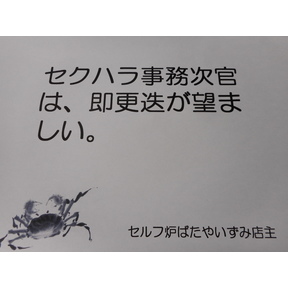 セクハラ事務次官
は、即更迭が望ま
しい。
セルフ炉ばたやいずみ店主